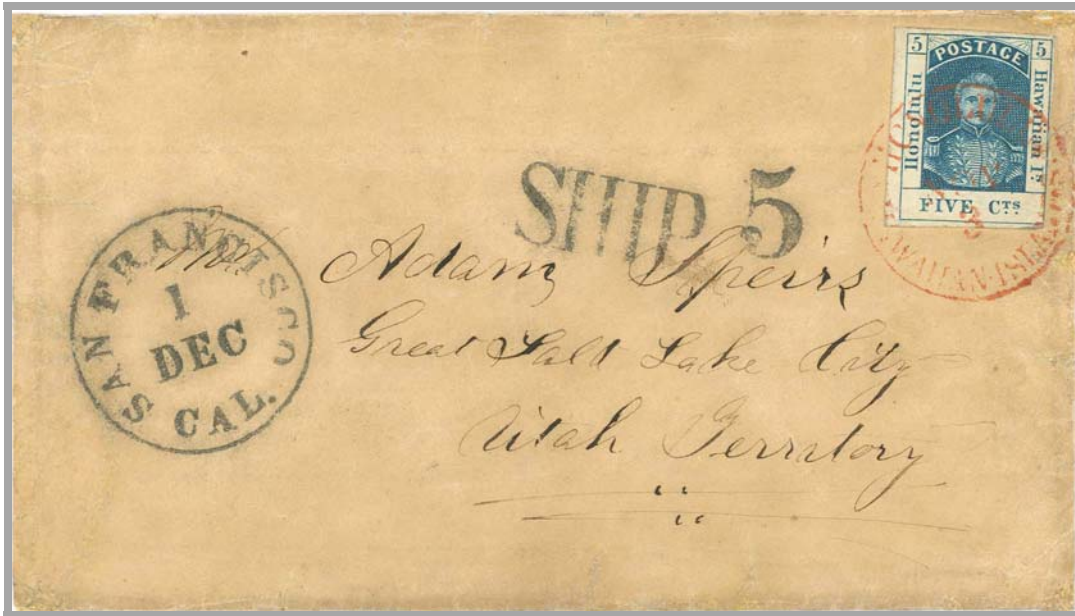 5 POSTAGE 5
Honolulu
Hawaiian Is.
FIVE CTS
HAWAIIAN-ISLANDS
SHIP 5
SAN FRANCISCO
1
DEC
CAL.
Adam Speirs
Great Salt Lake City
Utah Territory